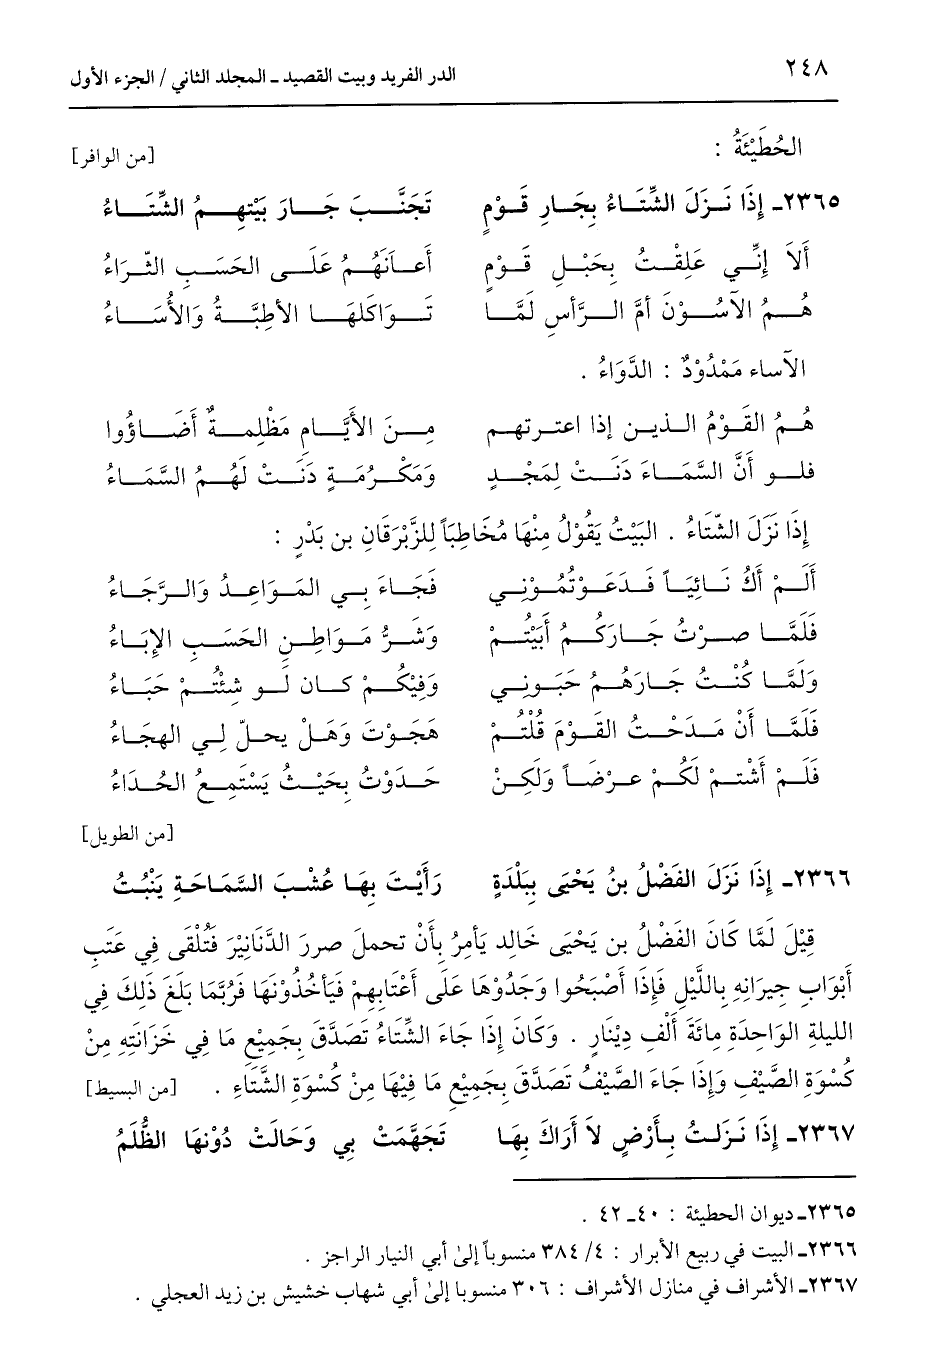 ٢٤٨ الدر الفريد وبيت القصيد ـ المجلد الثاني / الجزء الأول
الحُطَيْئَةُ : [من الوافر]
٢٣٦٥ـ إِذَا نَزَلَ الشِّتَاءُ بِجَارِ قَوْمٍ تَجَنَّبَ جَارَ بَيْتِهِمُ الشِّتَاءُ
أَلاَ إِنِّي عَلِقْتُ بِحَبْلِ قَوْمٍ أَعَانَهُمُ عَلَى الحَسَبِ الثَّرَاءُ
هُمُ الآسُوْنَ أُمَّ الرَّأْسِ لَمَّا تَوَاكَلَهَا الأَطِبَّةُ وَالأُسَاءُ
الآساء مَمْدُوْدٌ : الدَّوَاءُ .
هُمُ القَوْمُ الذين إذا اعترتهم مِنَ الأَيَّامِ مَظْلِمةٌ أَضَاؤُوا
فلو أَنَّ السَّمَاءَ دَنَتْ لِمَجْدٍ وَمَكْرُمَةٍ دَنَتْ لَهُمُ السَّمَاءُ
إِذَا نَزَلَ الشِّتَاءُ . البَيْتُ يَقُوْلُ مِنْهَا مُخَاطِبَاً لِلزَّبْرَقَانِ بن بَدْرٍ :
أَلَمْ أَكُ نَائِيَاً فَدَعَوْتُمُوْنِي فَجَاءَ بِي المَوَاعِدُ وَالرَّجَاءُ
فَلَمَّا صِرْتُ جَارَكُمُ أَبَيْتُمْ وَشَرُّ مَوَاطِنِ الحَسَبِ الإِبَاءُ
وَلَمَّا كُنْتُ جَارَهُمُ حَبَوْنِي وَفِيْكُمْ كان لَو شِئْتُمْ حَبَاءُ
فَلَمَّا أَنْ مَدَحْتُ القَوْمَ قُلْتُمْ هَجَوْتَ وَهَلْ يحلّ لِي الهِجَاءُ
فَلَمْ أَشْتِمْ لَكُمْ عِرْضَاً وَلَكِنْ حَدَوْتُ بِحَيْثُ يَسْتَمِعُ الحُدَاءُ
[من الطويل]
٢٣٦٦ـ إِذَا نَزَلَ الفَضْلُ بنُ يَحْيَى بِبَلْدَةٍ رَأَيْتَ بِهَا عُشْبَ السَّمَاحَةِ يَنْبُتُ
قِيْلَ لَمَّا كَانَ الفَضْلُ بن يَحْيَى خَالِد يَأمِرُ بِأَنْ تحملَ صررَ الدَّنَانِيْرَ فَتُلْقَى فِي عَتَبِ
أَبْوَابِ جِيرَانِهِ بِاللَّيْلِ فَإِذَا أَصْبَحُوا وَجَدُوْهَا عَلَى أَعْتَابِهِمْ فَيَأخُذُوْنَهَا فَرُبَّمَا بَلَغَ ذَلِكَ فِي
الليلةِ الوَاحِدَةِ مِائَةَ أَلْفِ دِيْنَارٍ . وَكَانَ إِذَا جَاءَ الشِّتَاءُ تَصَدَّقَ بِجَمِيْعِ مَا فِي خَزَانَتِهِ مِنْ
كُسْوَةِ الصَّيْفِ وَإِذَا جَاءَ الصَّيْفُ تَصَدَّقَ بِجَمِيْعِ مَا فِيْهَا مِنْ كُسْوَةِ الشِّتَاءِ . [من البسيط]
٢٣٦٧ـ إِذَا نَزَلتُ بِأَرْضٍ لاَ أَرَاكَ بِهَا تَجَهَّمَتْ بِي وَحَالَتْ دُوْنَهَا الظُّلَمُ
٢٣٦٥ـ ديوان الحطيئة : ٤٠ـ ٤٢ .
٢٣٦٦ـ البيت في ربيع الأبرار : ٤/ ٣٨٤ منسوباً إلى أبي النيار الراجز .
٢٣٦٧ـ الأشراف في منازل الأشراف : ٣٠٦ منسوبا إلى أبي شهاب خشيش بن زيد العجلي .